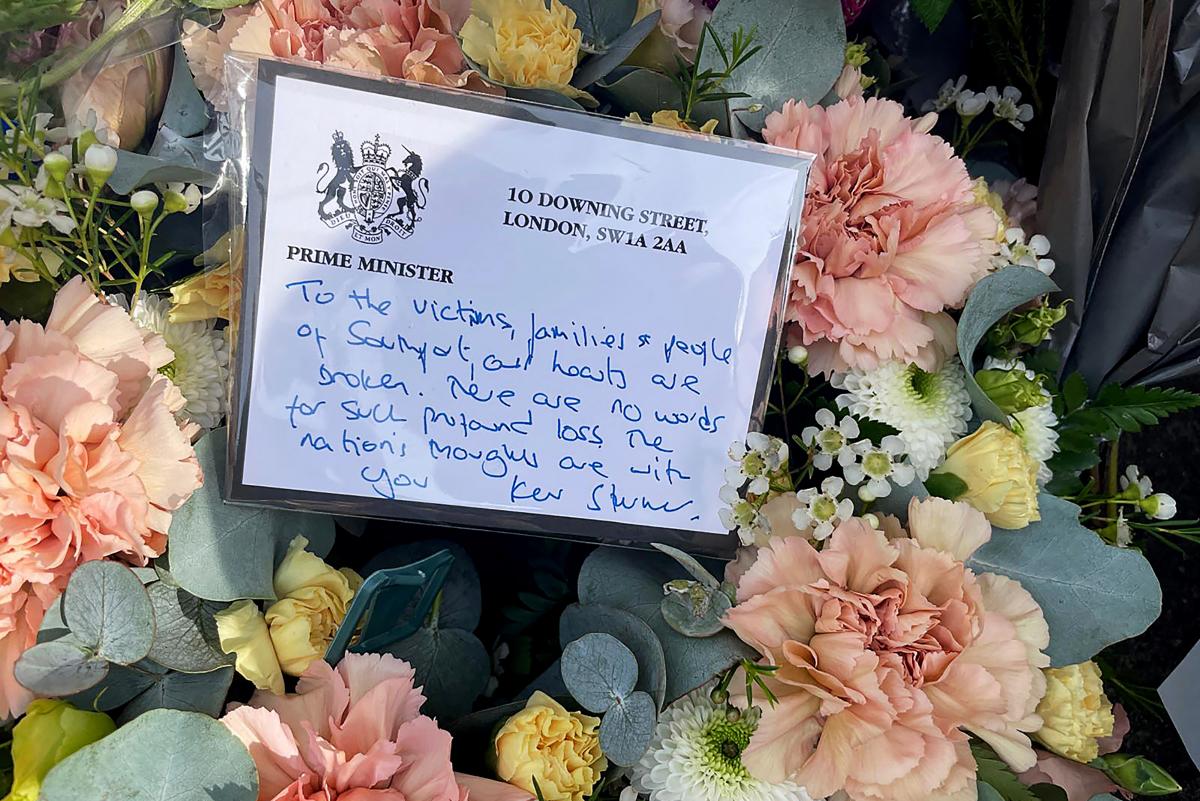 10 DOWNING STREET,
LONDON, SW1A 2AA
PRIME MINISTER
To the victims, families & people
of Southport, our hearts are
broken. There are no words
for such profound loss. The
nation's thoughts are with
you Keir Starmer.